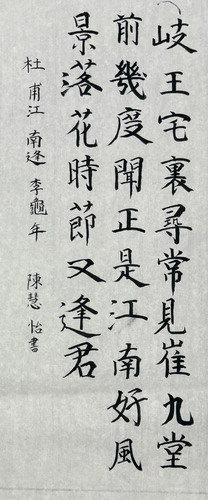 岐王宅裏尋常見崔九堂
前幾度聞正是江南好風
景落花時節又逢君
杜甫江南逢李龜年 陳慧怡書